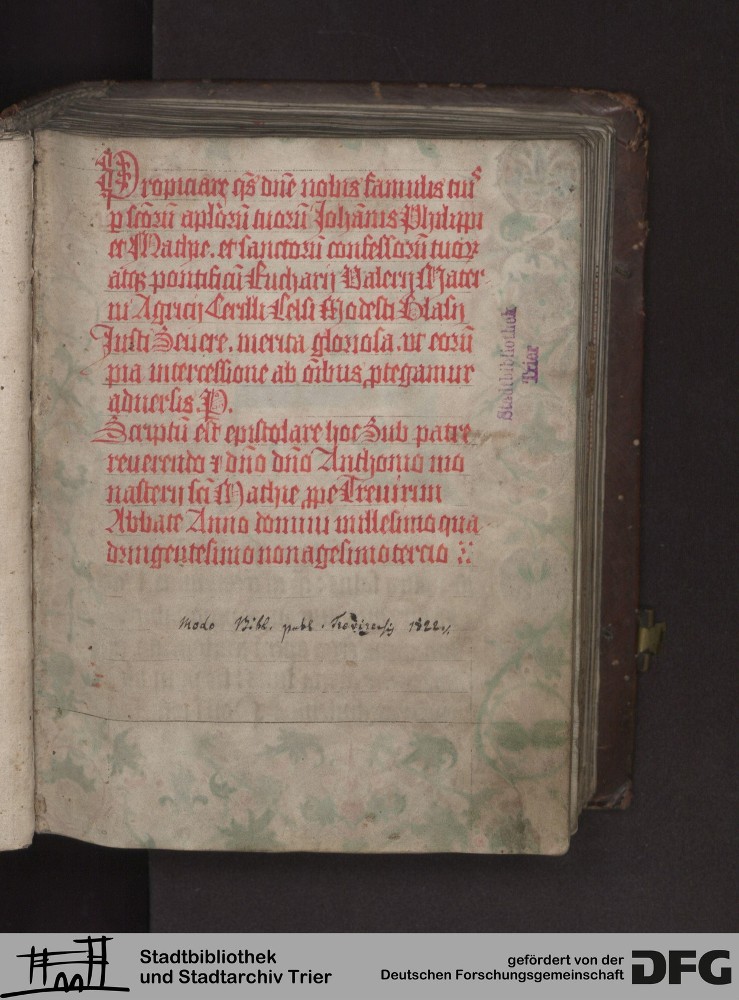 Propiciare qs̄ dn̄e nobis famulis tuis
ꝑ sc̄orū apl̓orū tuorū Joh̄annis Philippi
et Mathie. et sanctorū confessorū tuoꝝ
atqꝫ pontificū Eucharij Valerij Mater
ni Agricij Cerilli Celsi Modesti Blasij
Justi Seuere. merita gloriosa. vt eorū
pia intercessione ab oī̄bus ꝓtegamur
aduersis. P.
Scriptū est epistolare hoc Sub patre
reuerendo ⁊ dn̄o dn̄o Anthonio mo
nasterij sc̄i Mathie ꝓpe Treuirim
Abbate Anno domini millesimo qua
dringentesimo nonagesimo tercio
Modo Bibl. publ. Trevirensis 1822.
Stadtbibliothek
Trier
Stadtbibliothek
und Stadtarchiv Trier
gefördert von der
Deutschen Forschungsgemeinschaft
DFG